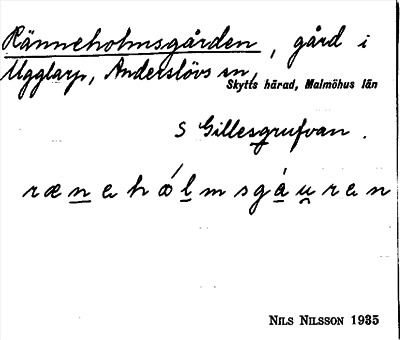 Ränneholmsgården, gård i
Ugglarp, Anderslövs sn,
Skytts härad, Malmöhus län
S Gillesgrufvan.
rænehólmsgáuren
NILS NILSSON 1935